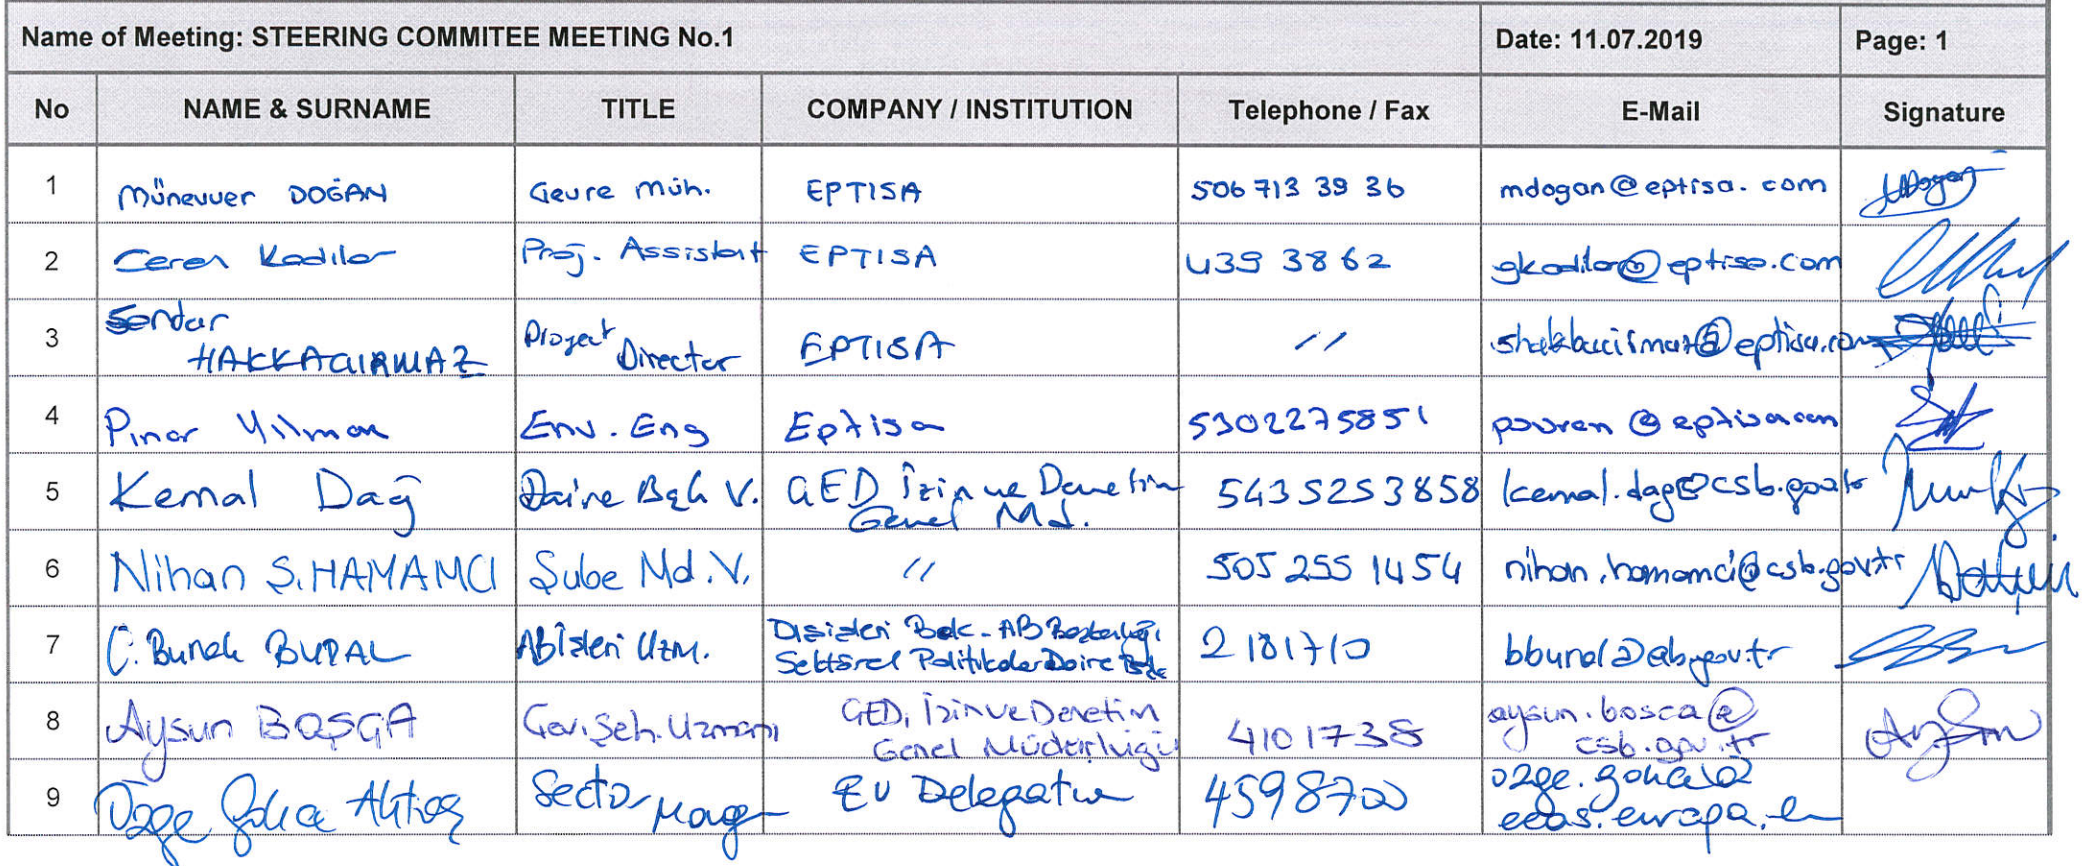 Name of Meeting: STEERING COMMITEE MEETING No.1 Date: 11.07.2019 Page: 1
No NAME & SURNAME TITLE COMPANY / INSTITUTION Telephone / Fax E-Mail Signature
1 Münevver DOĞAN Çevre Müh. EPTISA 506 713 39 36 mdogan@eptisa.com
2 Ceren Kadılar Proj. Assistant EPTISA 439 3862 gkadilar@eptisa.com
3 Serdar HAKKAÇIRMAZ Project Director EPTISA // @eptisa.com
4 Pınar Yılmaz Env. Eng Eptisa 5302275851 @eptisa.com
5 Kemal Dağ Daire Bşk V. ÇED İzin ve Denetim Genel Md. 5435253858 kemal.dag@csb.gov.tr
6 Nihan Ş. HAMAMCI Şube Md. V. // 505 255 1454 nihan.hamamci@csb.gov.tr
7 BURAL AB İşleri Uzm. Dışişleri Bak. - AB Başkanlığı
Sektörel Politikalar Daire Bşk 2181710 bbural@ab.gov.tr
8 Aysun BOŞÇA Çev. Şeh. Uzmanı ÇED, İzin ve Denetim
Genel Müdürlüğü 4101738 aysun.bosca@
csb.gov.tr
9 Özge Gökçe Sector EU Delegation 4598700 ozge.gokce@
eeas.europa.eu